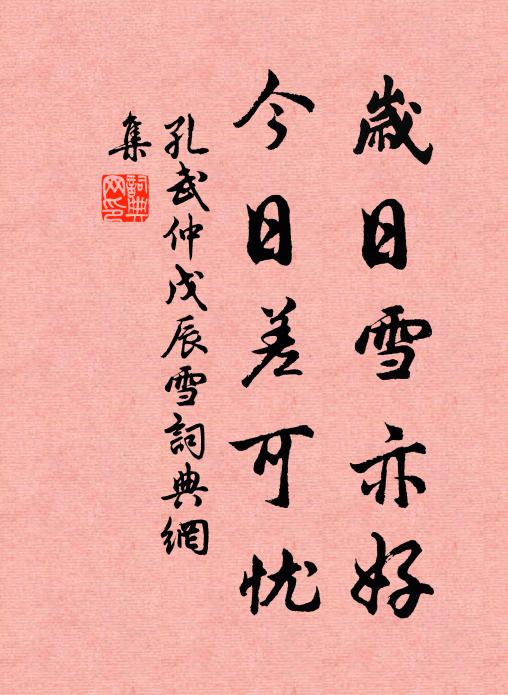 歲日雪亦好
今日差可忧
孔武仲戊辰雪詞典網
集
詞典网印